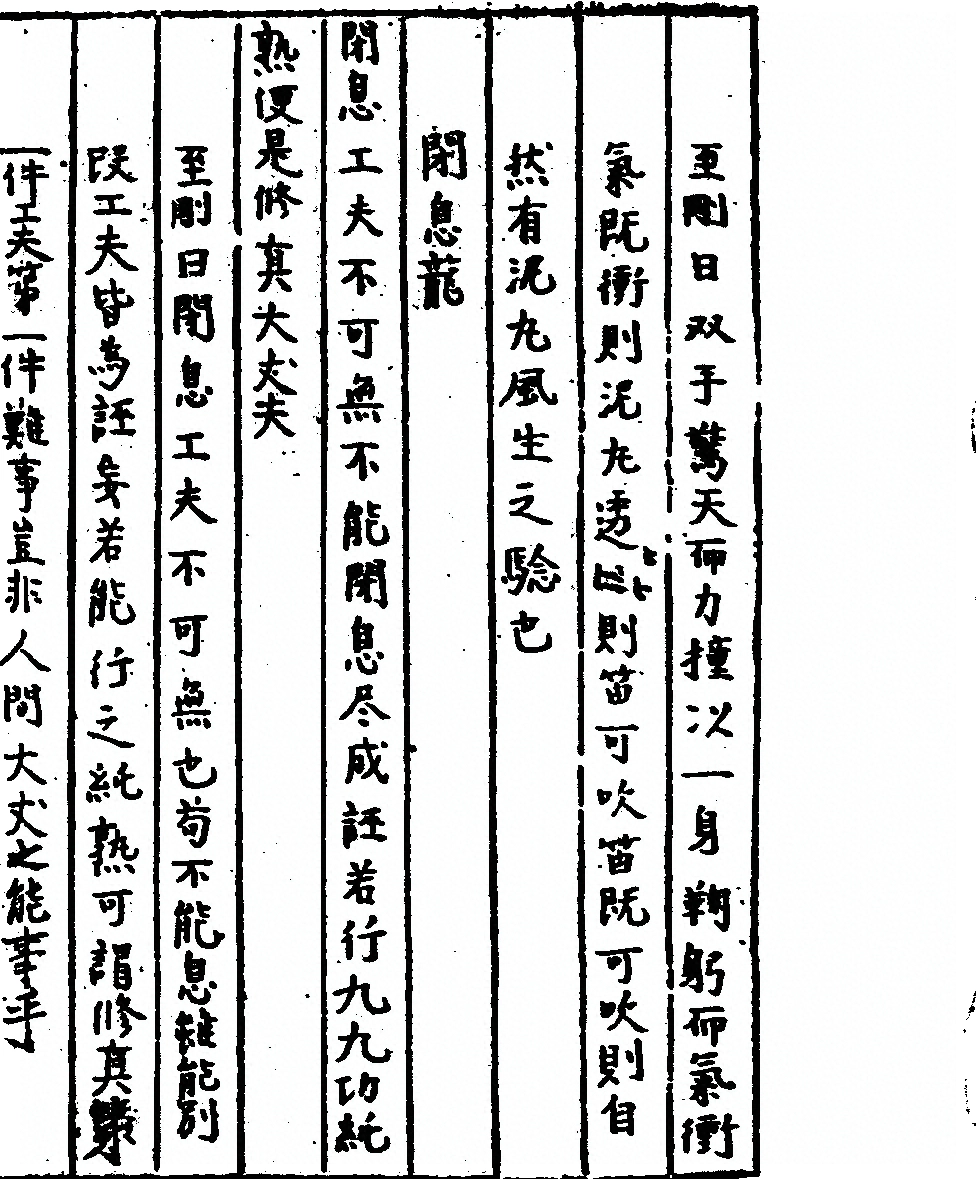 至剛曰双手驚天而力撞以一身鞠躬而氣衝
氣既衝則泥九透則笛可吹笛既可吹則自
然有泥九風生之驗也
閉息龍
閉息工夫不可無不能閉息尽成誑若行九九功純
熟便是修真大丈夫
至剛曰閉息工夫不可無也苟不能息雖能別
段工夫皆為誑妄若能行之純熟可謂修真第
一件工夫第一件難事豈非人間大丈之能事乎